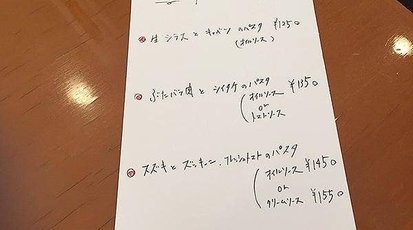 生シラスとキャベツのパスタ ¥1250
(オイルソース)
ぶたバラ肉とシイタケのパスタ ¥1350
(オイルソース
or
トマトソース
スズキとズッキーニ、フレッシュトマトのパスタ
(オイルソース ¥1450
or
クリームソース ¥1550